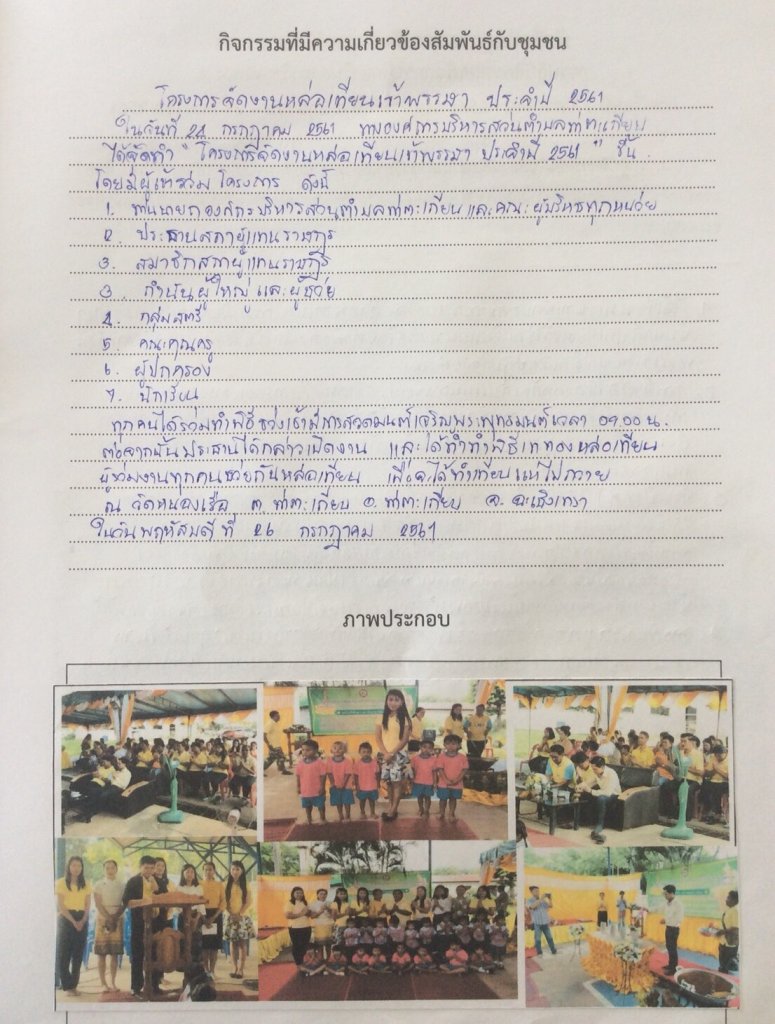 กิจกรรมที่มีความเกี่ยวข้องสัมพันธ์กับชุมชน
โครงการจัดงานหล่อเทียนเข้าพรรษา ประจำปี 2561
ในวันที่ 24 กรกฎาคม 2561 ทางองค์การบริหารส่วนตำบลท่าตะเกียบ
ได้จัดทำ " โครงการจัดงานหล่อเทียนเข้าพรรษา ประจำปี 2561 " ขึ้น
โดยมีผู้เข้าร่วมโครงการ ดังนี้
1. ท่านนายกองค์การบริหารส่วนตำบลท่าตะเกียบ และคณะผู้บริหารทุกหน่วย
2. ประธานสภาผู้แทนราษฎร
3. สมาชิกสภาผู้แทนราษฎร
3. กำนันผู้ใหญ่ และผู้ช่วย
4. กลุ่มสตรี
5. คณะคุณครู
6. ผู้ปกครอง
7. นักเรียน
ทุกคนได้ร่วมทำพิธีช่วงเช้ามีการสวดมนต์เจริญพระพุทธมนต์เวลา 09.00 น.
ต่อจากนั้นประธานได้กล่าวเปิดงาน และได้ทำพิธีเททองหล่อเทียน
ผู้ร่วมงานทุกคนช่วยกันหล่อเทียน เพื่อจะได้นำเทียนแห่ไปถวาย
ณ วัดหนองเรือ ต.ท่าตะเกียบ อ.ท่าตะเกียบ จ.ฉะเชิงเทรา
ในวันพฤหัสบดีที่ 26 กรกฎาคม 2561
ภาพประกอบ